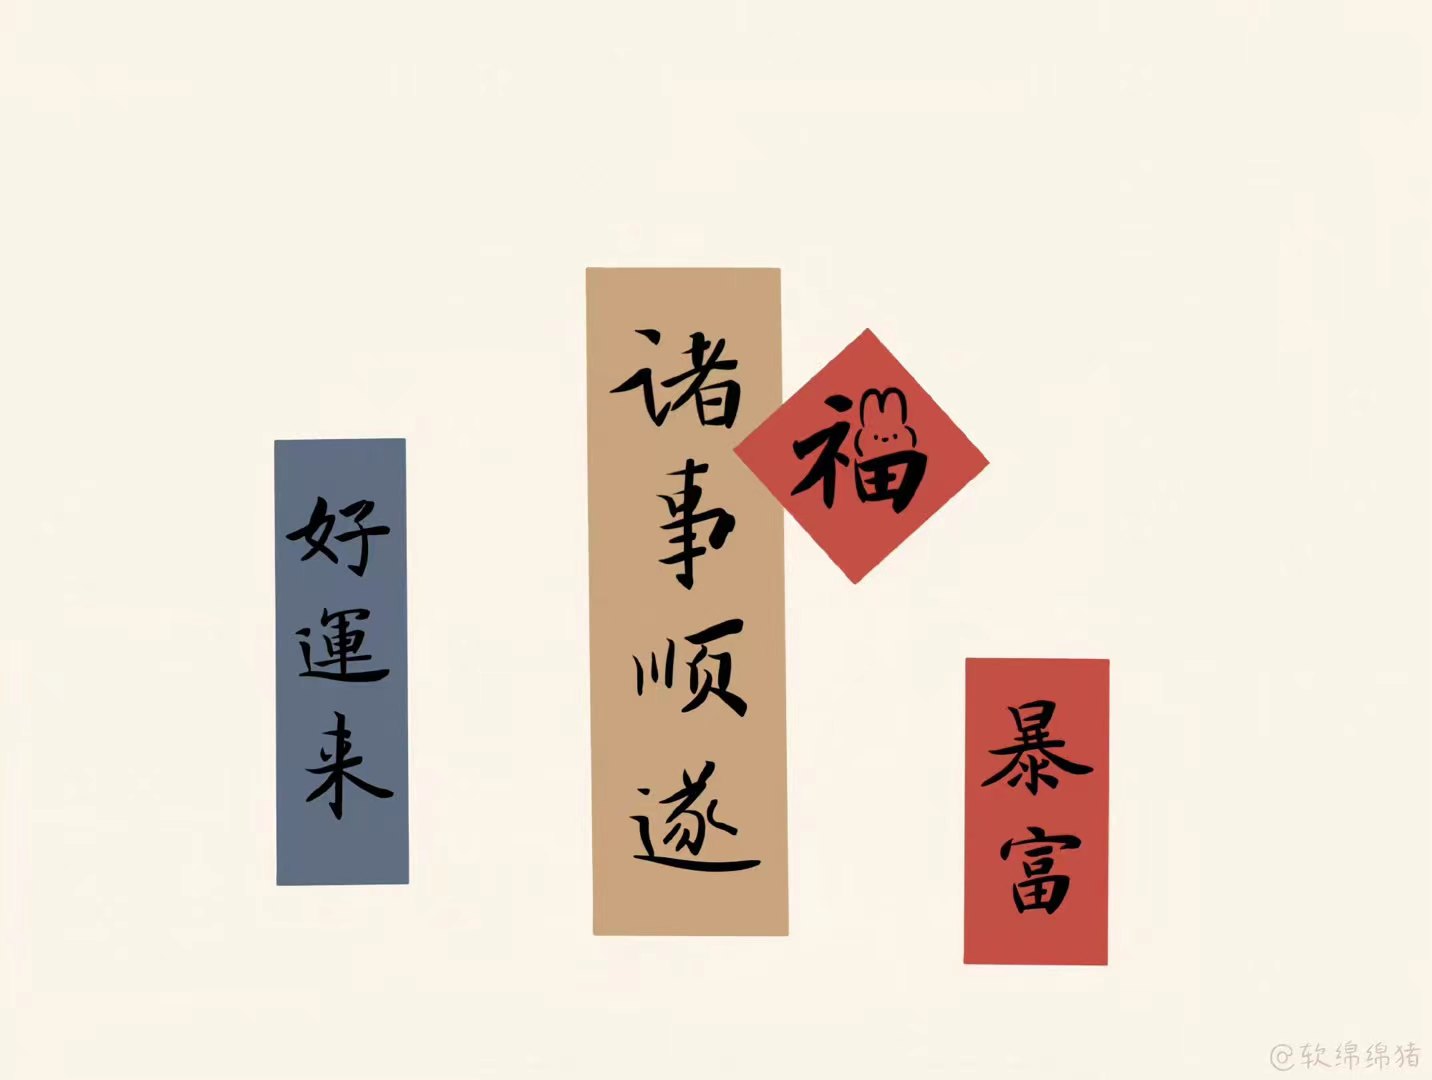 好運来
诸事顺遂
福
暴富
@软绵绵猪